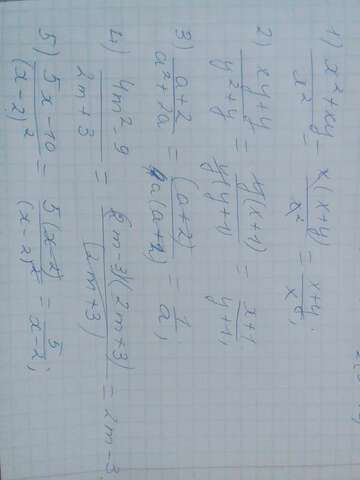 1) x²+xy / x² = x(x+y) / x² = x+y / x;
2) xy+y / y²+y = y(x+1) / y(y+1) = x+1 / y+1;
3) a+2 / a²+2a = (a+2) / a(a+2) = 1 / a;
4) 4m²-9 / 2m+3 = (2m-3)(2m+3) / (2m+3) = 2m-3.
5) 5x-10 / (x-2)² = 5(x-2) / (x-2)² = 5 / x-2;